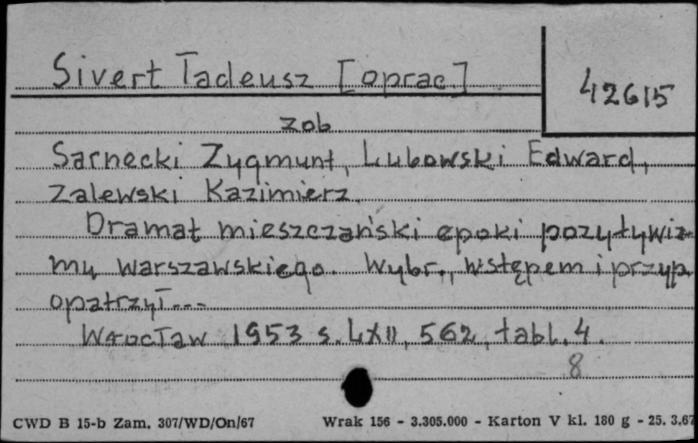 Sivert Tadeusz [oprac]
42615
zob
Sarnecki Zygmunt, Lubowski Edward,
Zalewski Kazimierz.
Dramat mieszczański epoki pozytywiz-
mu warszawskiego. Wybr., wstępem i przyp.
opatrzył...
Wrocław 1953 s. LXII, 562, tabl. 4.
8
CWD B 15-b Zam. 307/WD/On/67
Wrak 156 - 3.305.000 - Karton V kl. 180 g - 25. 3.67